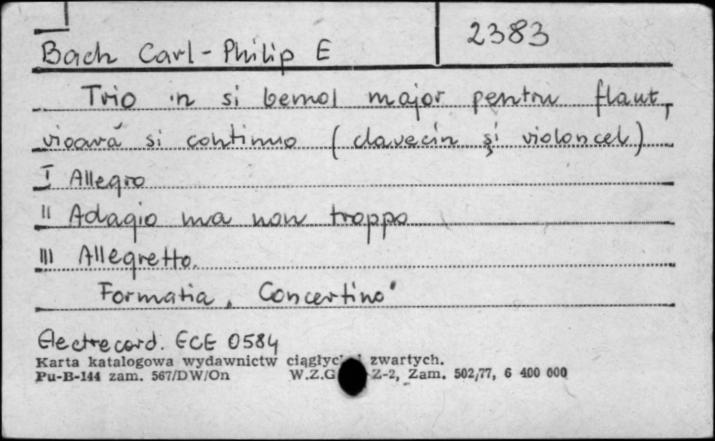 2383
Bach Carl-Philip E
Trio in si bemol major pentru flaut,
vioară si continuo (clavecin şi violoncel)
I Allegro
II Adagio ma non troppo
III Allegretto.
Formatia „Concertino"
Electrecord. ECE 0584
Karta katalogowa wydawnictw ciągłych i zwartych.
Pu-B-144 zam. 567/DW/On W.Z.G Z-2, Zam. 502/77, 6 400 000